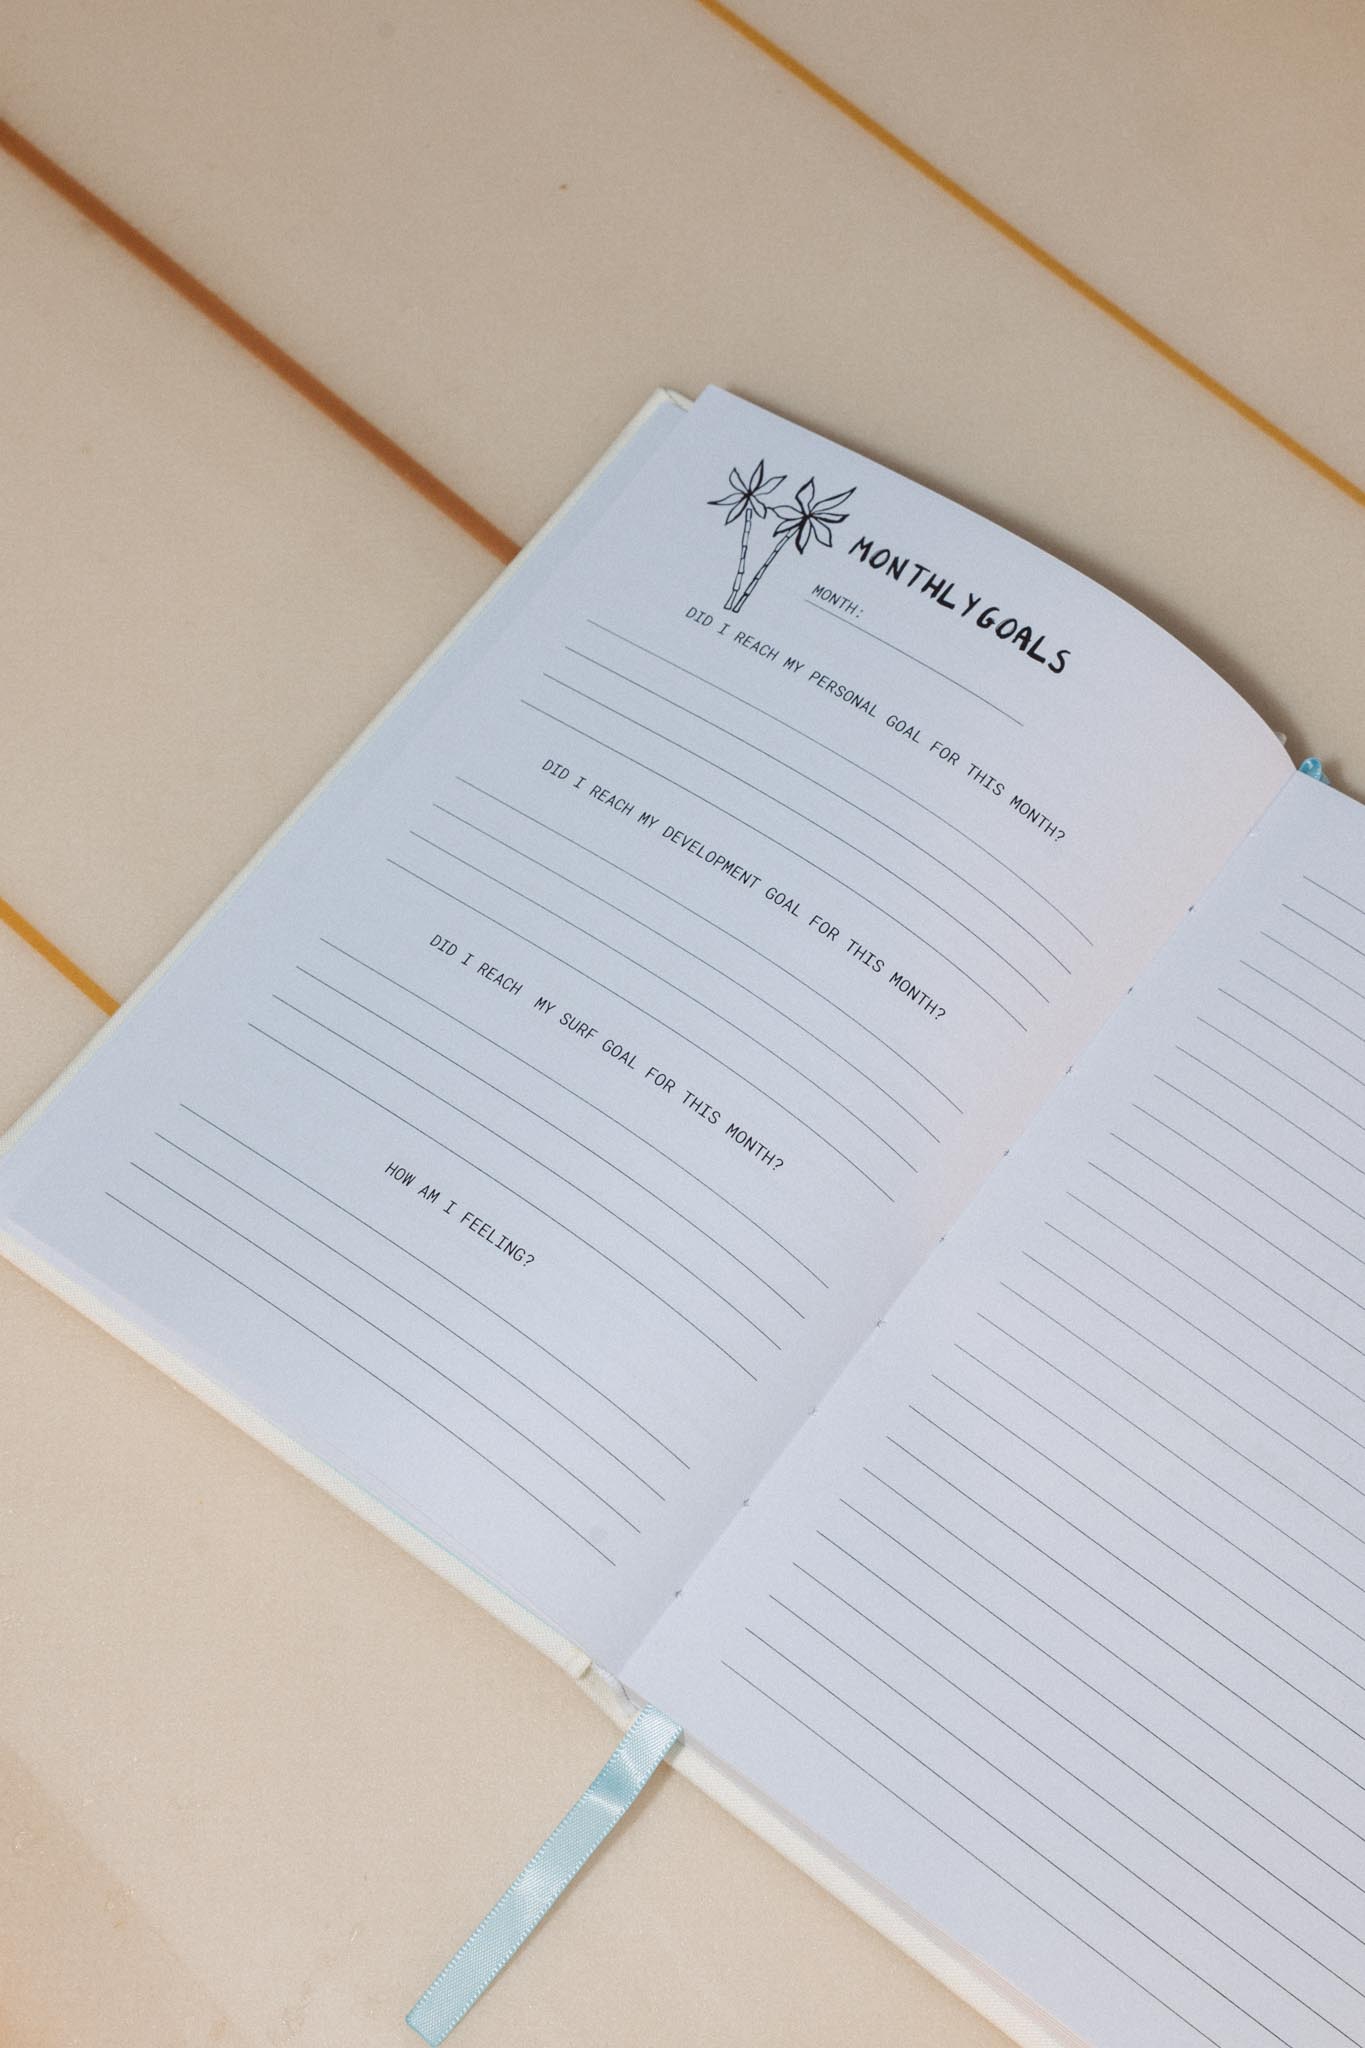 MONTHLY GOALS
MONTH:
DID I REACH MY PERSONAL GOAL FOR THIS MONTH?
DID I REACH MY DEVELOPMENT GOAL FOR THIS MONTH?
DID I REACH MY SURF GOAL FOR THIS MONTH?
HOW AM I FEELING?